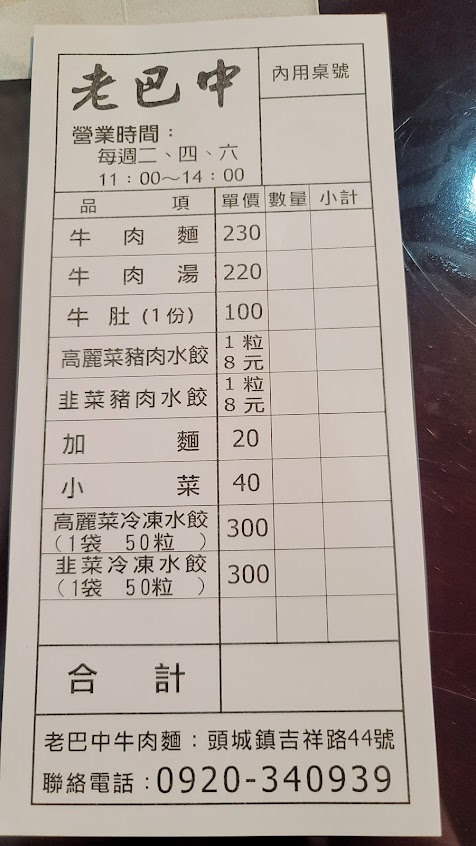 老巴中
內用桌號
營業時間：
每週二、四、六
11：00～14：00
品 項 單價 數量 小計
牛肉麵 230
牛肉湯 220
牛肚(1份) 100
高麗菜豬肉水餃 1粒8元
韭菜豬肉水餃 1粒8元
加麵 20
小菜 40
高麗菜冷凍水餃 300
(1袋 50粒 )
韭菜冷凍水餃 300
(1袋 50粒 )
合計
老巴中牛肉麵：頭城鎮吉祥路44號
聯絡電話：0920-340939